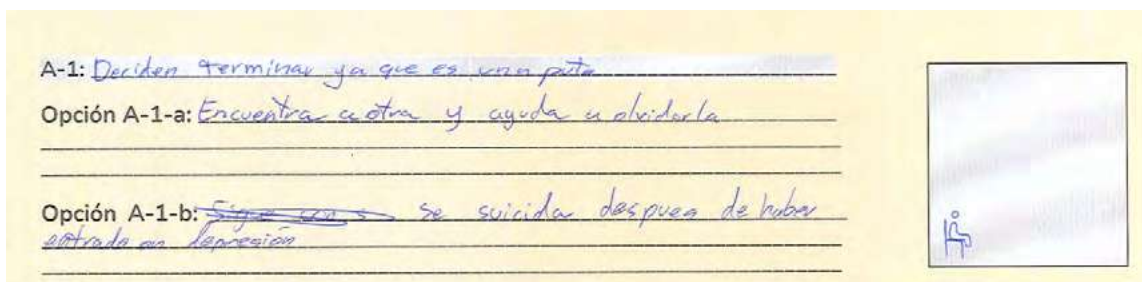 A-1: Deciden terminar ya que es una puta
Opción A-1-a: Encuentra a otra y ayuda a olvidarla
Opción A-1-b: se suicida despues de haber
entrado en depresión